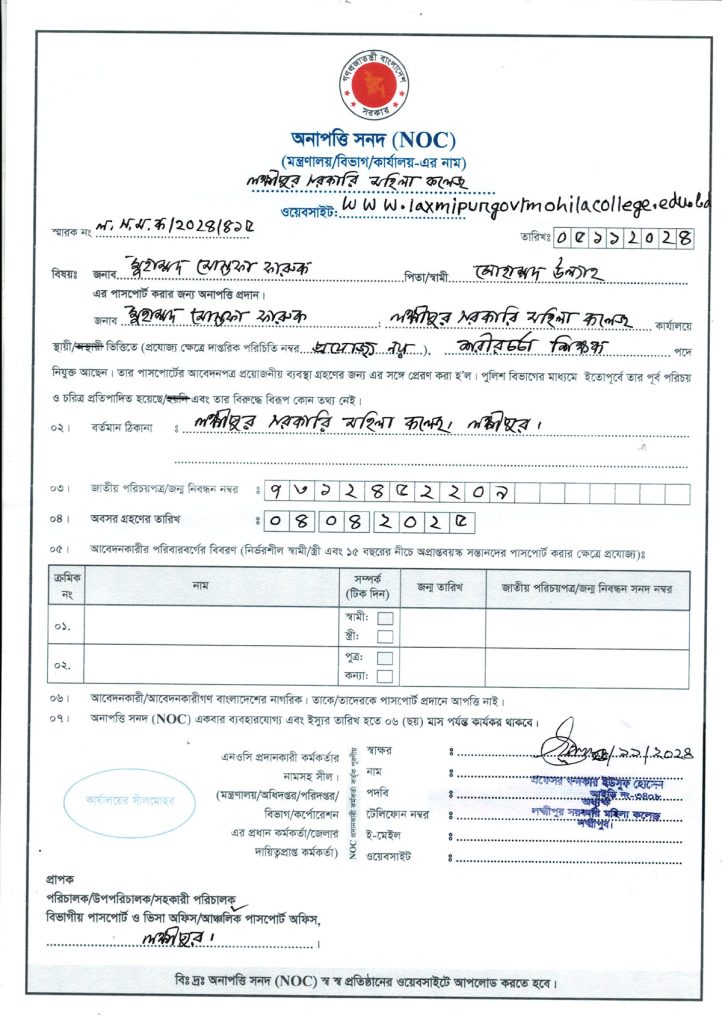 গণপ্রজাতন্ত্রী বাংলাদেশ
সরকার
অনাপত্তি সনদ (NOC)
(মন্ত্রণালয়/বিভাগ/কার্যালয়-এর নাম)
লক্ষ্মীপুর সরকারি মহিলা কলেজ
ওয়েবসাইট: www.laxmipurgovtmohilacollege.edu.bd
স্মারক নং ল.স.ম.ক/২০২৪/৪১৫
তারিখঃ ০৫১১২০২৪
বিষয়ঃ জনাব মুহাম্মদ মোস্তফা ফারুক পিতা/স্বামী মোহাম্মদ উল্যাহ
এর পাসপোর্ট করার জন্য অনাপত্তি প্রদান।
জনাব মুহাম্মদ মোস্তফা ফারুক ; লক্ষ্মীপুর সরকারি মহিলা কলেজ কার্যালয়ে
স্থায়ী/অস্থায়ী ভিত্তিতে (প্রযোজ্য ক্ষেত্রে দাপ্তরিক পরিচিতি নম্বর প্রযোজ্য নয়), শরীরচর্চা শিক্ষক পদে
নিযুক্ত আছেন। তার পাসপোর্টের আবেদনপত্র প্রয়োজনীয় ব্যবস্থা গ্রহণের জন্য এর সঙ্গে প্রেরণ করা হ'ল। পুলিশ বিভাগের মাধ্যমে ইতোপূর্বে তার পূর্ব পরিচয়
ও চরিত্র প্রতিপাদিত হয়েছে/হয়নি এবং তার বিরুদ্ধে বিরূপ কোন তথ্য নেই।
০২। বর্তমান ঠিকানা : লক্ষ্মীপুর সরকারি মহিলা কলেজ, লক্ষ্মীপুর।
০৩। জাতীয় পরিচয়পত্র/জন্ম নিবন্ধন নম্বর ঃ ৭৩১২৪৫২২০৯
০৪। অবসর গ্রহণের তারিখ ঃ ০৪০৪২০২৫
০৫। আবেদনকারীর পরিবারবর্গের বিবরণ (নির্ভরশীল স্বামী/স্ত্রী এবং ১৫ বছরের নীচে অপ্রাপ্তবয়স্ক সন্তানদের পাসপোর্ট করার ক্ষেত্রে প্রযোজ্য)ঃ
ক্রমিক নং নাম সম্পর্ক (টিক দিন) জন্ম তারিখ জাতীয় পরিচয়পত্র/জন্ম নিবন্ধন সনদ নম্বর
০১. স্বামী:
স্ত্রী:
০২. পুত্র:
কন্যা:
০৬। আবেদনকারী/আবেদনকারীগণ বাংলাদেশের নাগরিক। তাকে/তাদেরকে পাসপোর্ট প্রদানে আপত্তি নাই।
০৭। অনাপত্তি সনদ (NOC) একবার ব্যবহারযোগ্য এবং ইস্যুর তারিখ হতে ০৬ (ছয়) মাস পর্যন্ত কার্যকর থাকবে।
কার্যালয়ের সীলমোহর
এনওসি প্রদানকারী কর্মকর্তার
নামসহ সীল।
(মন্ত্রণালয়/অধিদপ্তর/পরিদপ্তর/
বিভাগ/কর্পোরেশন
এর প্রধান কর্মকর্তা/জেলার
দায়িত্বপ্রাপ্ত কর্মকর্তা)
NOC প্রদানকারী কর্মকর্তা কর্তৃক পূরণীয়
স্বাক্ষর ঃ /১১/২০২৪
নাম ঃ প্রফেসর খন্দকার ইউসুফ হোসেন
আইডি নং-৩৪০৮
পদবি ঃ অধ্যক্ষ
টেলিফোন নম্বর ঃ লক্ষ্মীপুর সরকারি মহিলা কলেজ
লক্ষ্মীপুর।
ই-মেইল ঃ
ওয়েবসাইট ঃ
প্রাপক
পরিচালক/উপপরিচালক/সহকারী পরিচালক
বিভাগীয় পাসপোর্ট ও ভিসা অফিস/আঞ্চলিক পাসপোর্ট অফিস,
লক্ষ্মীপুর।
বিঃ দ্রঃ অনাপত্তি সনদ (NOC) স্ব স্ব প্রতিষ্ঠানের ওয়েবসাইটে আপলোড করতে হবে।